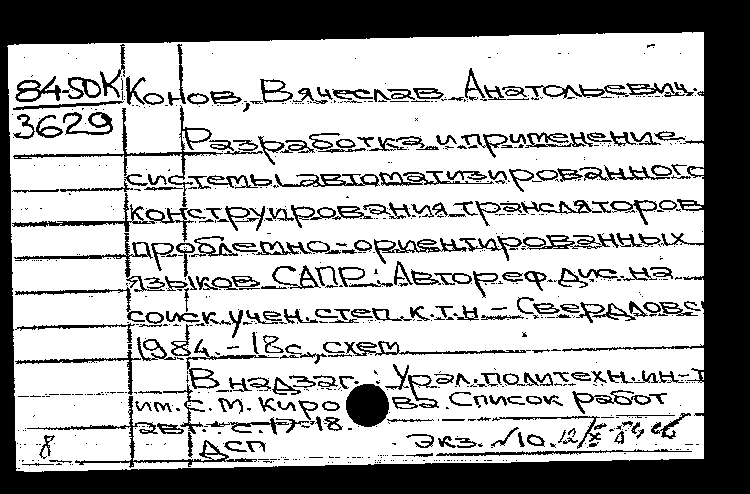 84-50К Конов, Вячеслав Анатольевич.
3629
Разработка и применение
системы автоматизированного
конструирования трансляторов
проблемно-ориентированных
языков САПР: Автореф. дис. на
соиск. учен. степ. к.т.н. – Свердловс
1984. – 18 с., схем.
В надзаг.: Урал. политехн. ин-т
им. С. М. Кирова. Список работ
авт.: с. 17-18.
8 ДСП Экз. №10.